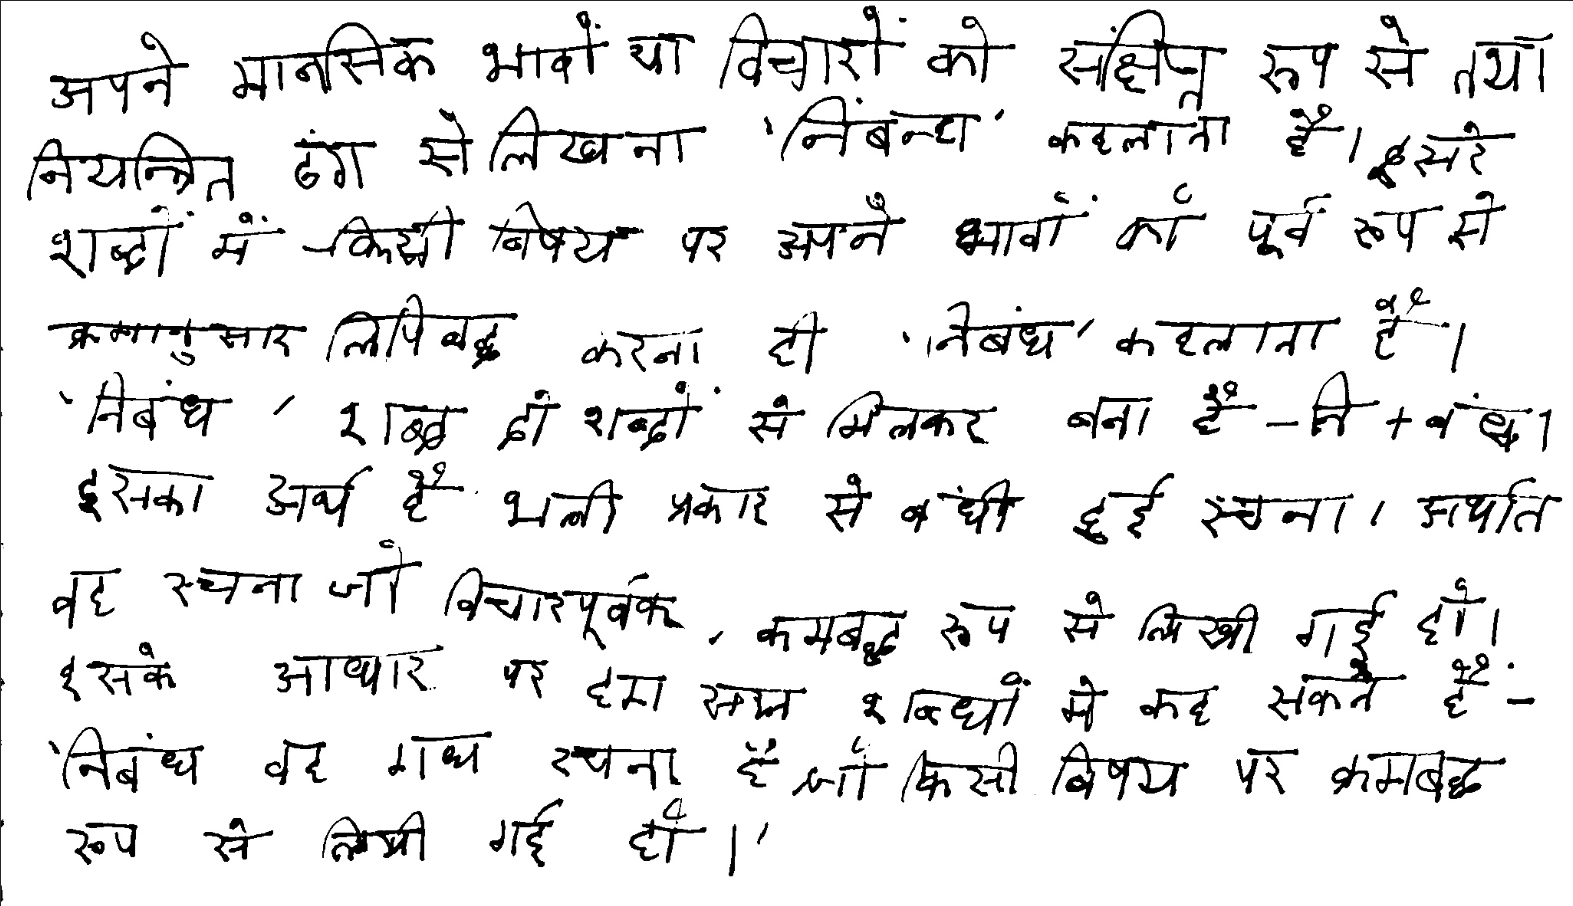 अपने मानसिक भावों या विचारों को संक्षिप्त रूप से तथा
नियन्त्रित ढंग से लिखना 'निबंन्ध' कहलाता है। दूसरे
शब्दों में किसी विषय पर अपने भावों को पूर्व रूप से
क्रमानुसार लिपिबद्ध करना ही 'निबंध' कहलाता है।
'निबंध' शब्द दो शब्दों से मिलकर बना है - नि + बंध।
इसका अर्थ है भली प्रकार से बंधी हुई रचना। अर्थात
वह रचना जो विचारपूर्वक, कमबद्ध रूप से लिखी गई हो।
इसके आधार पर हम सरल शब्धों में कह सकते हैं -
'निबंध वह गध रचना है जो किसी विषय पर क्रमबद्ध
रूप से लिखी गई हो।'